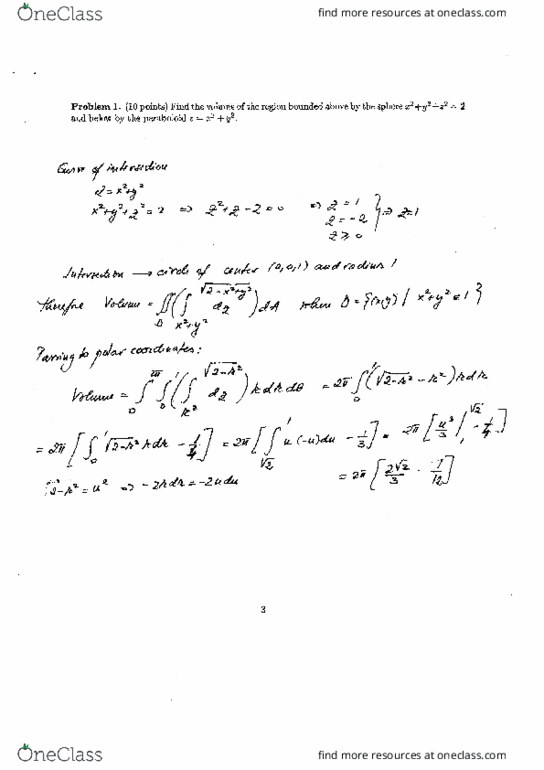 OneClass
find more resources at oneclass.com
Problem 1. (10 points) Find the volume of the region bounded above by the sphere x²+y²+z² = 2
and below by the paraboloid z = x² + y².
Curve of intersection
z = x²+y²
x²+y²+z²=2 ⇒ z²+z−2=0 ⇒ z=1 z=−2 z≥0 } ⇒ z=1
Intersection → circle of center (0,0,1) and radius 1
Therefore Volume = ∬_D ( ∫_{x²+y²}^{√(2−x²+y²)} dz ) dA where D = {(x,y) / x²+y² ≤ 1}
Passing to polar coordinates:
Volume = ∫_0^{2π} ∫_0^1 ( ∫_{r²}^{√(2−r²)} dz ) r dr dθ = 2π ∫_0^1 (√(2−r²) − r²) r dr
= 2π [ ∫_0^1 √(2−r²) r dr − 1/4 ] = 2π [ ∫_{√2}^1 u (−u) du − 1/3 ] = 2π [ u³/3 |_1^{√2} − 1/4 ]
2−r² = u² ⇒ −2r dr = −2u du
= 2π [ 2√2/3 − 7/12 ]
3
OneClass
find more resources at oneclass.com